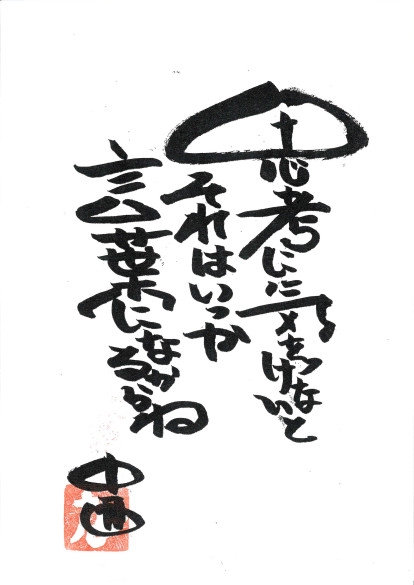 思考に気をつけないと
それはいつか
言葉になるからね